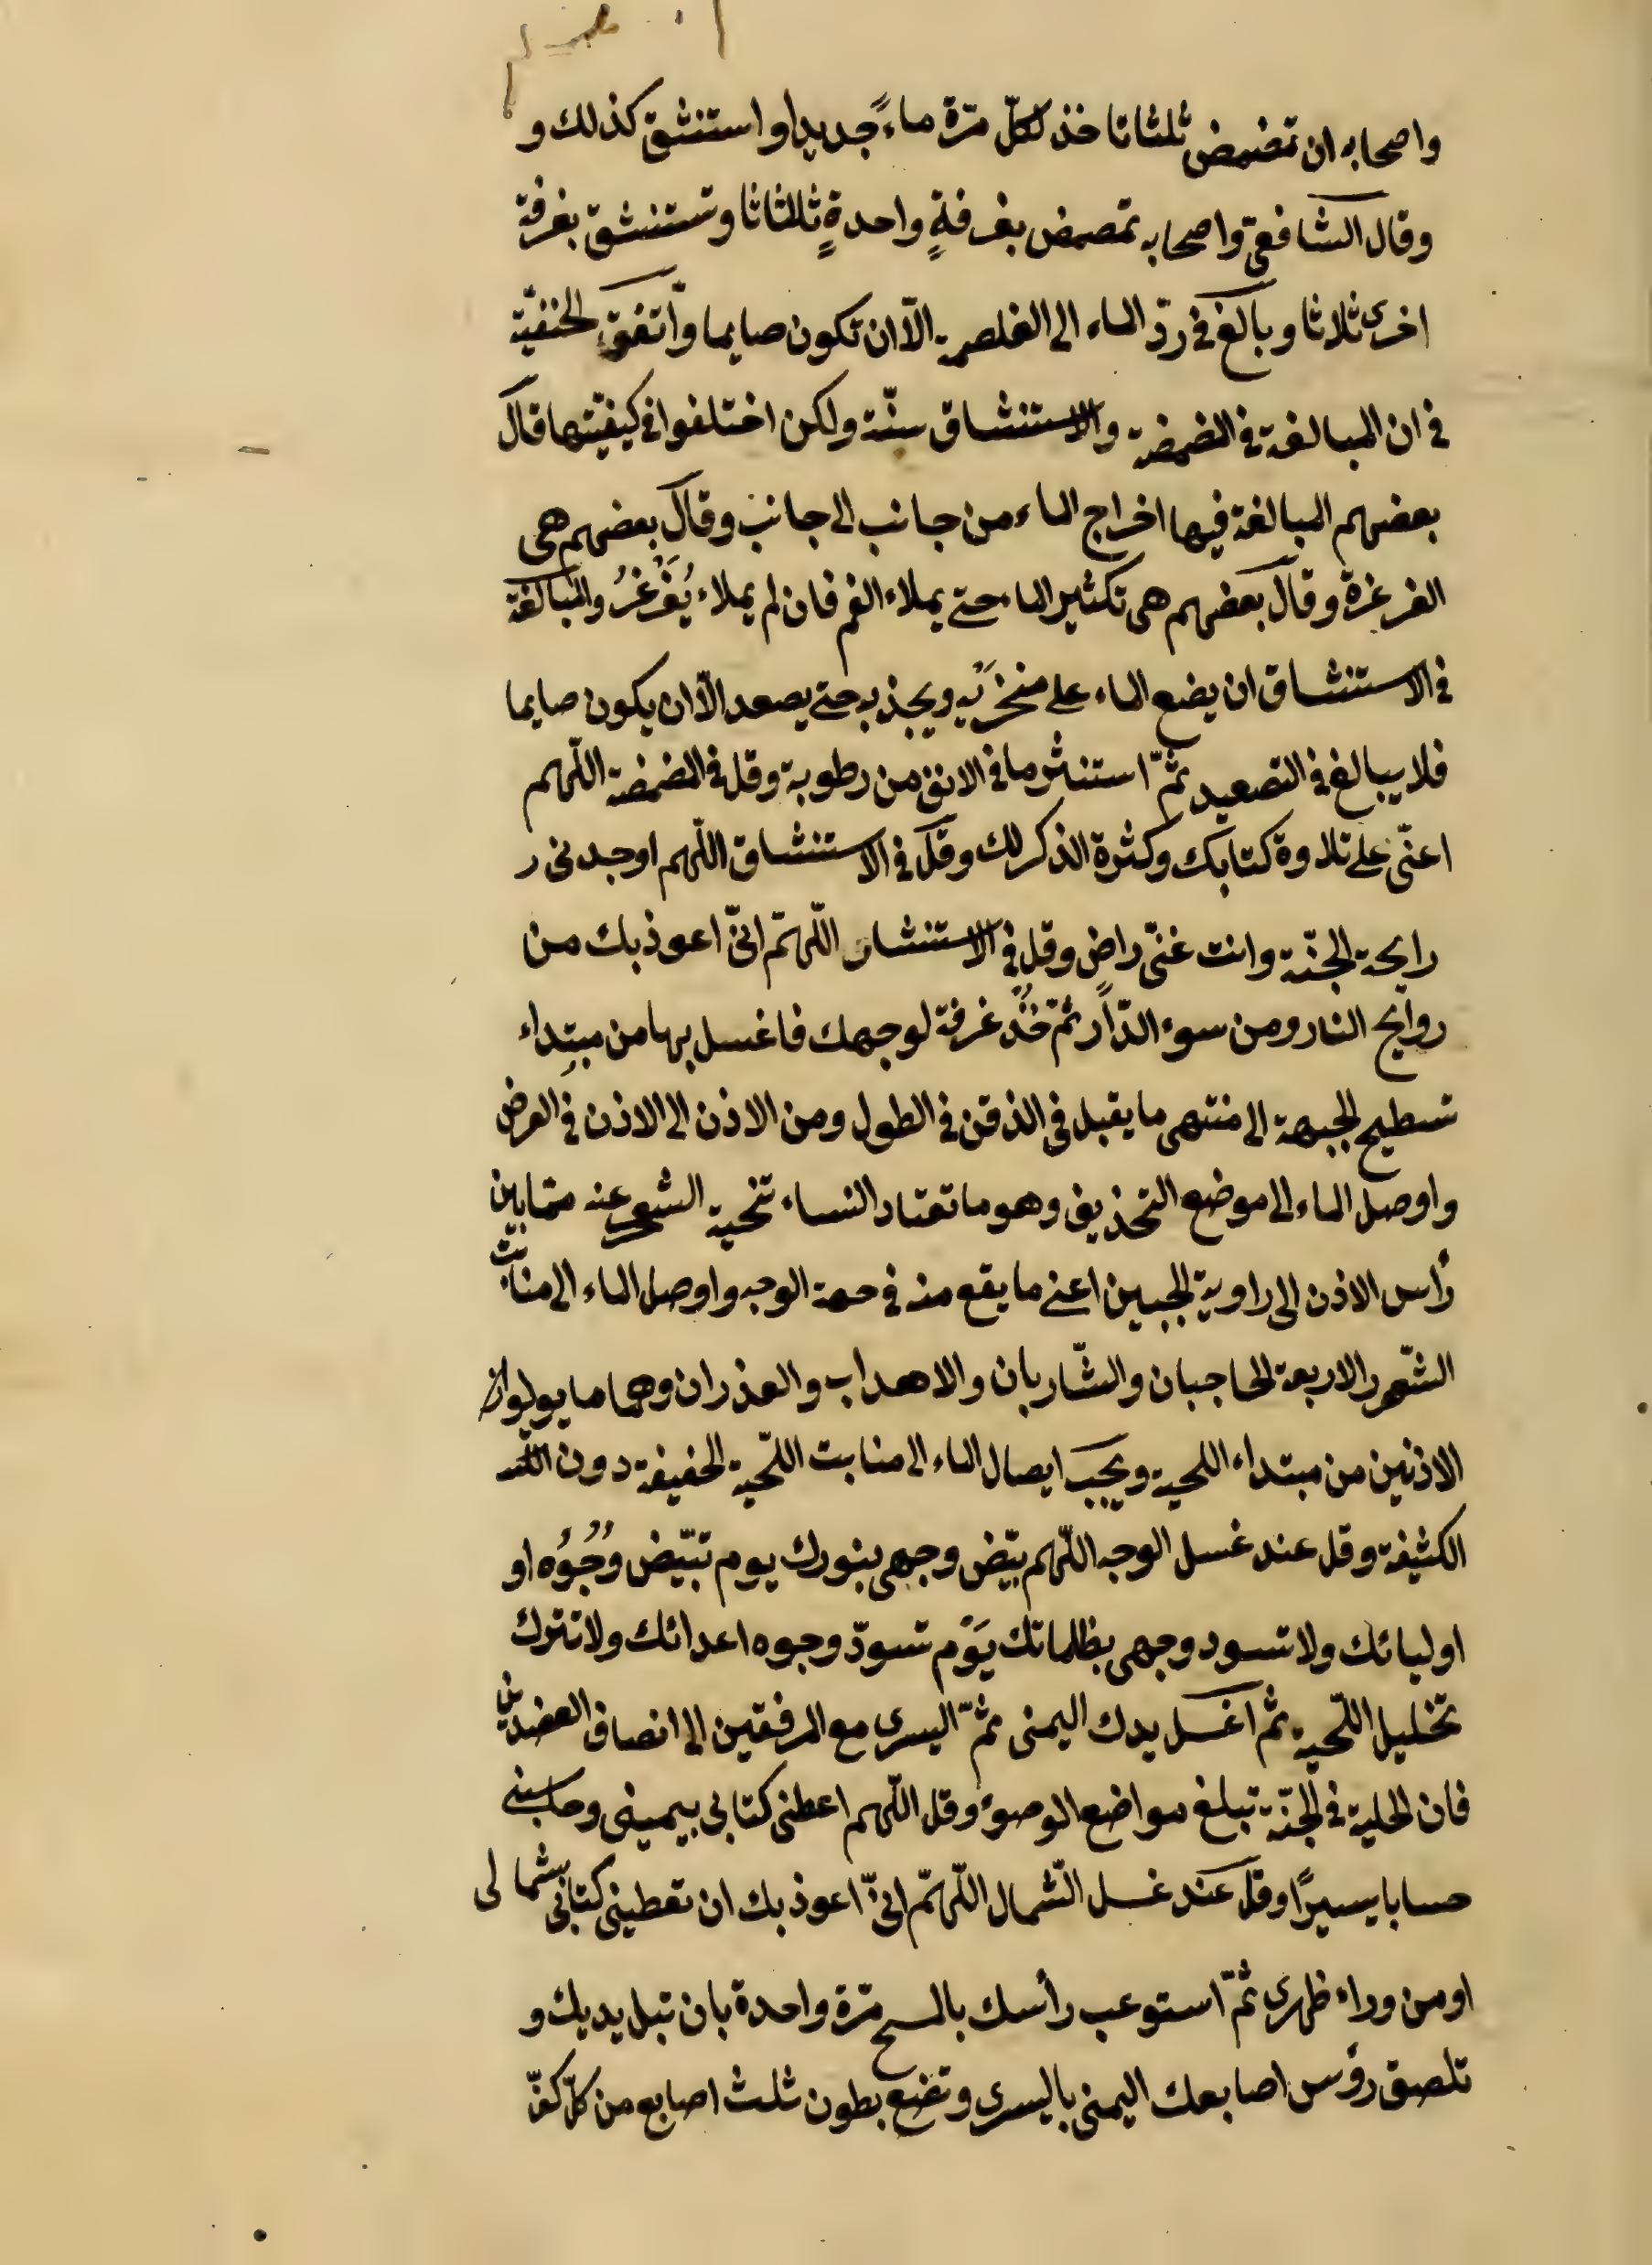 واصحابه ان تمضمض ثلثا تاخذ لكلّ مرّة ماءً جديدا واستنشق كذلك و
وقال الشافعىّ واصحابه تمصمض بغرفةٍ واحدةٍ ثلثاثا وتستنشق بغرفة
اخرى ثلاثا وبالغ فى ردّ الماء الى الغلصمة الّا ان تكون صايما واتفق الحنفيّة
فى ان المبالغة فى المضمضة والاستنشاق سنّة ولكن اختلفوا فى كيفيّتها قال
بعضهم المبالغة فيها اخراج الماء من جانب الى جانب وقال بعضهم هى
الغرغرة وقال بعضهم هى تكثير الماء حتى يملاء الفم فان لم يملاء يُغَرْغرُ والمبالغة
فى الاستنشاق ان يضع الماء على منخرَيْه ويجذبه حتى يصعد الّا ان يكون صايما
فلا يبالغ فى التصعيد ثمّ استنثر ما فى الانف من رطوبة وقل فى المضمضة اللّهم
اعنّى على تلاوة كتابك وكثرة الذكر لك وقل فى الاستنشاق اللّهم اوجدنى ر
رايحة الجنّة وانت عنّى راضٍ وقل فى الاستنشار اللّهمّ انّى اعوذ بك من
روايح النار ومن سوء الدّار ثم خُذ غرفة لوجهك فاغسل بها من مبتداء
تسطيح الجبهة الى منتهى ما يقبل فى الذقن فى الطول ومن الاذن الى الاذن فى العرض
واوصل الماء الى موضع التحذيف وهو ما تعتاد النساء تنحية الشعر عنه ممّا بين
رأس الاذن الى زاوية الجبين اعنى ما يقع منه فى جهة الوجه واوصل الماء الى منابت
الشّعور الاربعة الحاجبان والشّاربان والاهداب والعذران وهما ما يولوان
الاذنين من مبتداء اللحية ويجب ايصال الماء الى منابت اللّحية الخفيفة دون
الكثيفة وقل عند غسل الوجه اللّهم بيّض وجهى بنورك يوم تبيّض وُجُوُه او
اوليائك ولا تسود وجهى بظلماتك يَوْم تسودّ وجوه اعدائك ولا تترك
تخليل اللّحية ثم اغسل يدك اليمنى ثمّ اليسرى مع المرفقين الى انصاف العضدين
فان الحلية فى الجنّة تبلغ مواضع الوضوء وقل اللّهم اعطنى كتابى بيمينى وحاسبنى
حسابا يسيرًا وقل عند غسل الشّمال اللّهمّ انّى اعوذ بك ان تعطينى كتابى بشمالى
او من وراء ظهرى ثمّ استوعب رأسك بالمسح مرّة واحدة بان تبل يديك و
تلصق رؤس اصابعك اليمنى باليسرى وتضع بطون ثلث اصابع من كلّ كفّ